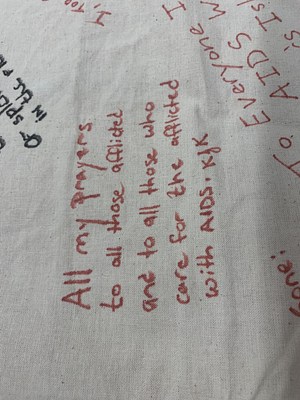 All my prayers
to all those afflicted
and to all those who
care for the afflicted
with AIDS KJK
To Everyone I
AIDS W
is Isl